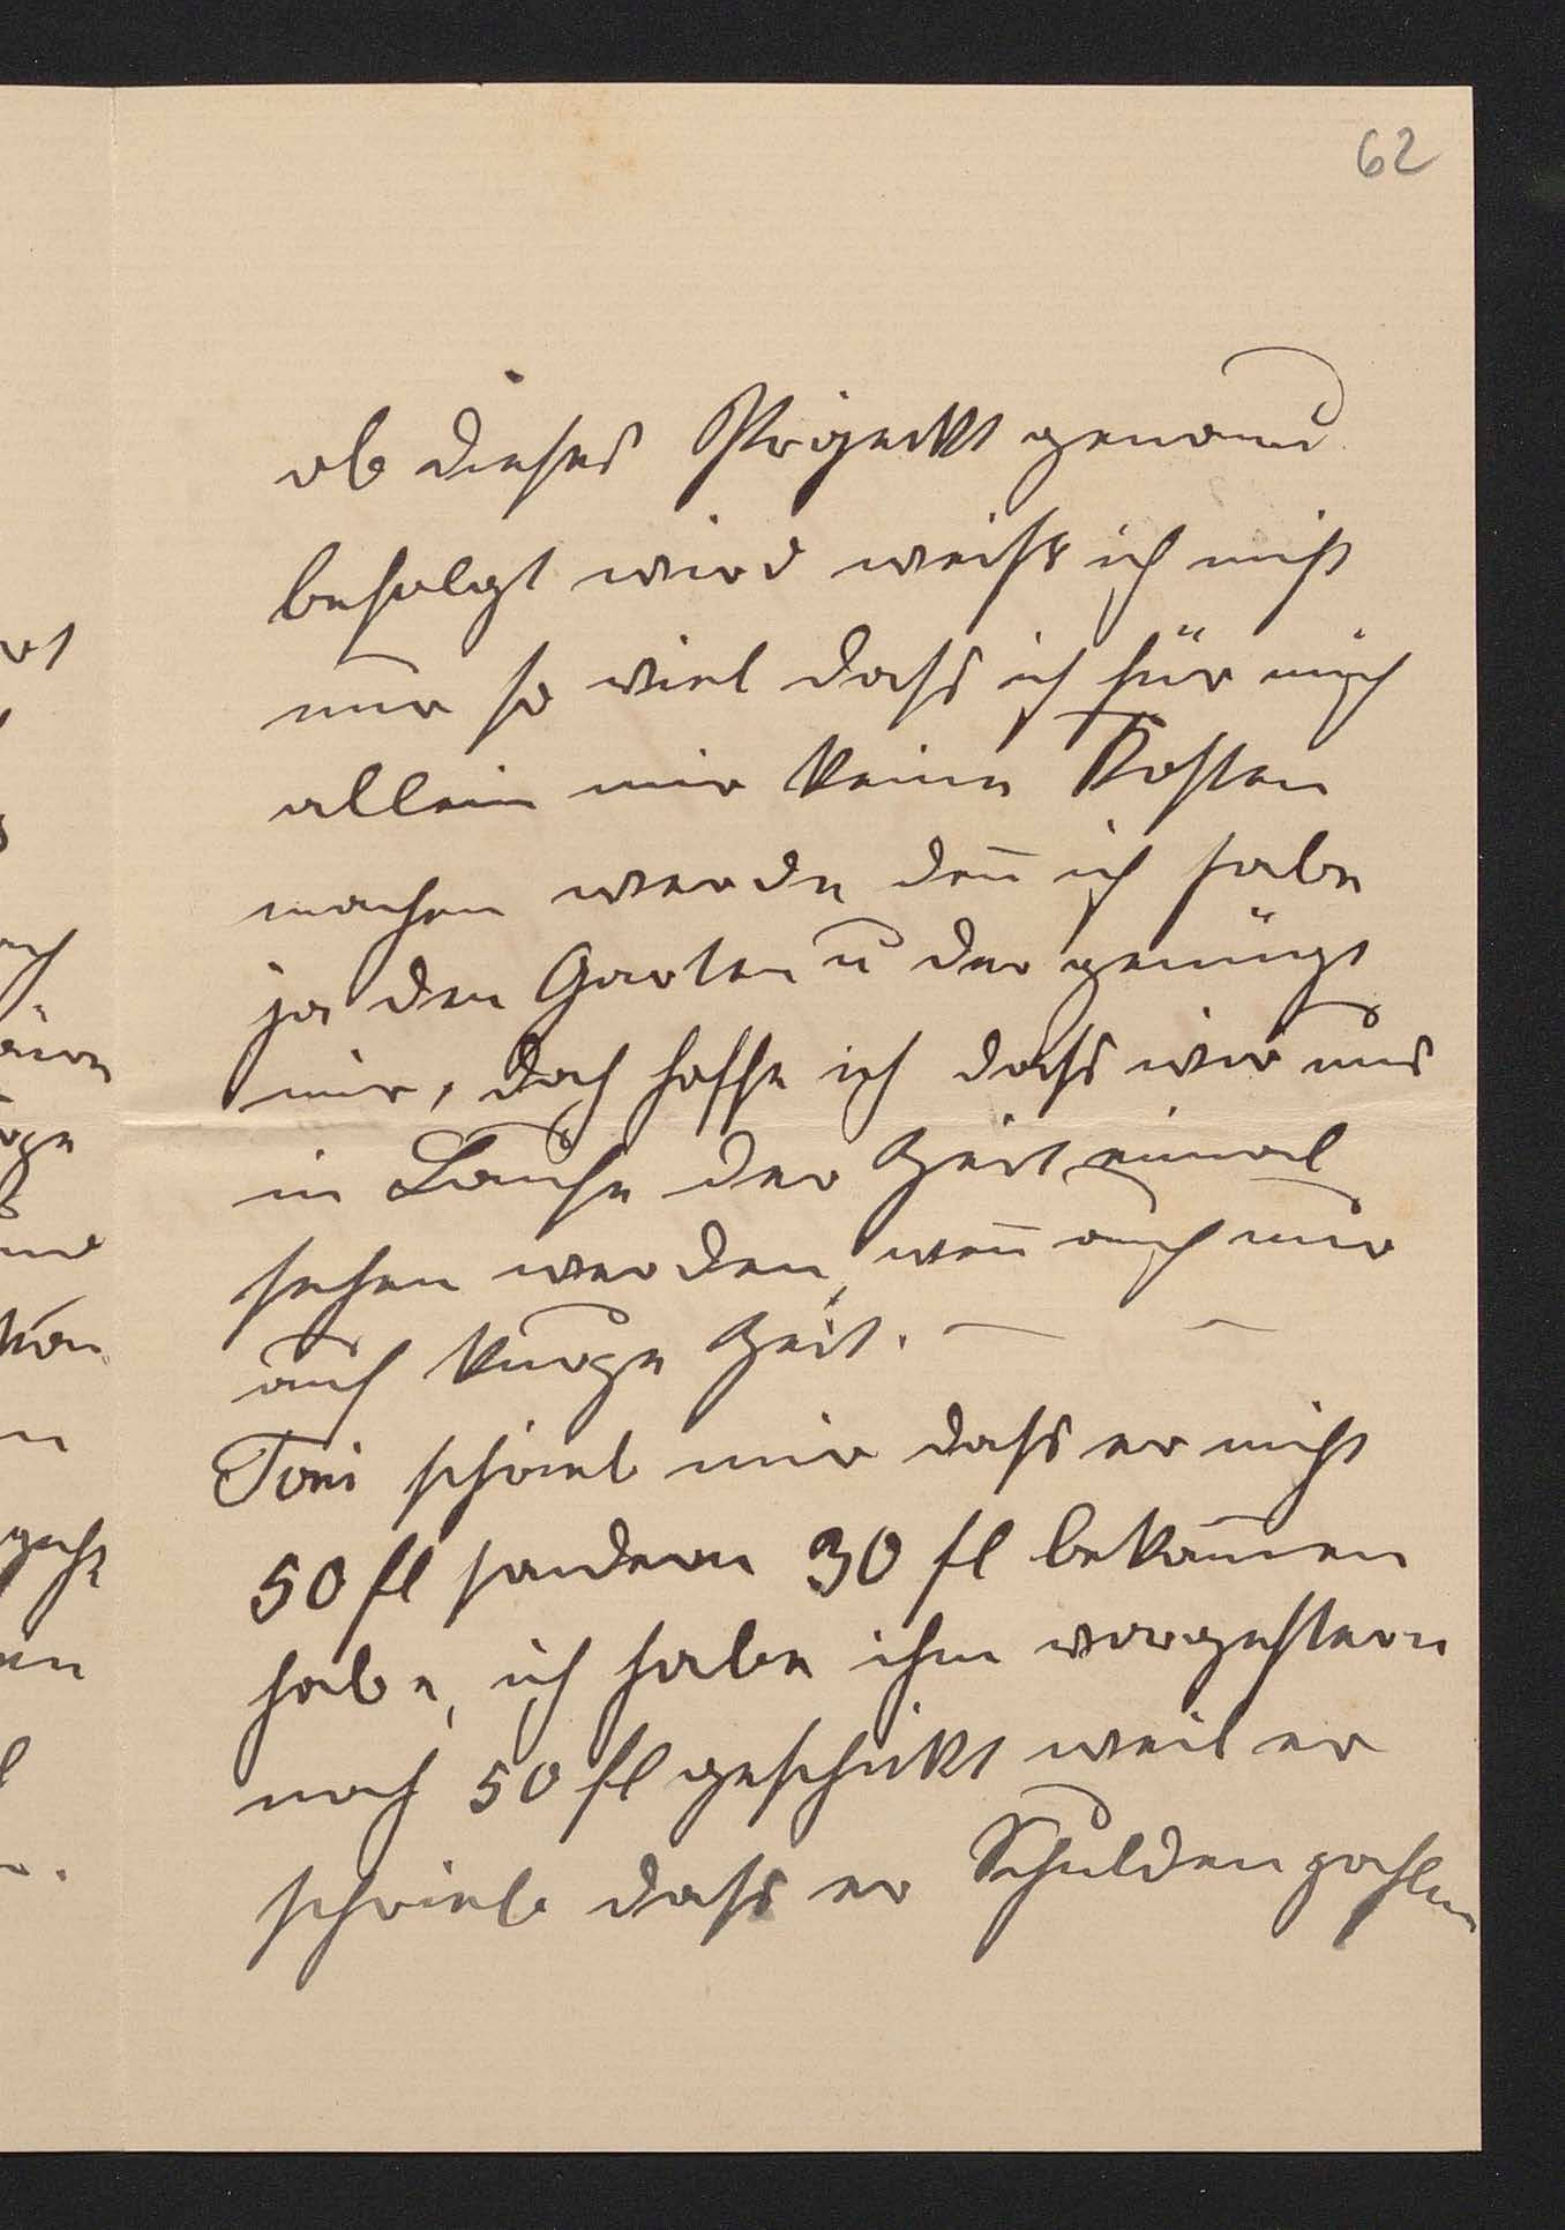 62
ob dieses Projekt genau
befolgt wird weiß ich nicht
nur so viel daß ich für mich
allein mir keine Kosten
machen werde den̄ ich habe
ja den Garten u der genügt
mir, doch hoffe ich daß wir uns
in Laufe der Zeit einmal
sehen werden, wen̄ auch nur
auf kurze Zeit. —
Toni schrieb mir daß er nicht
50 fl sondern 30 fl bekom̄en
habe, ich habe ihm vorgestern
noch 50 fl geschickt weil er
schrieb daß er Schulden zahlen